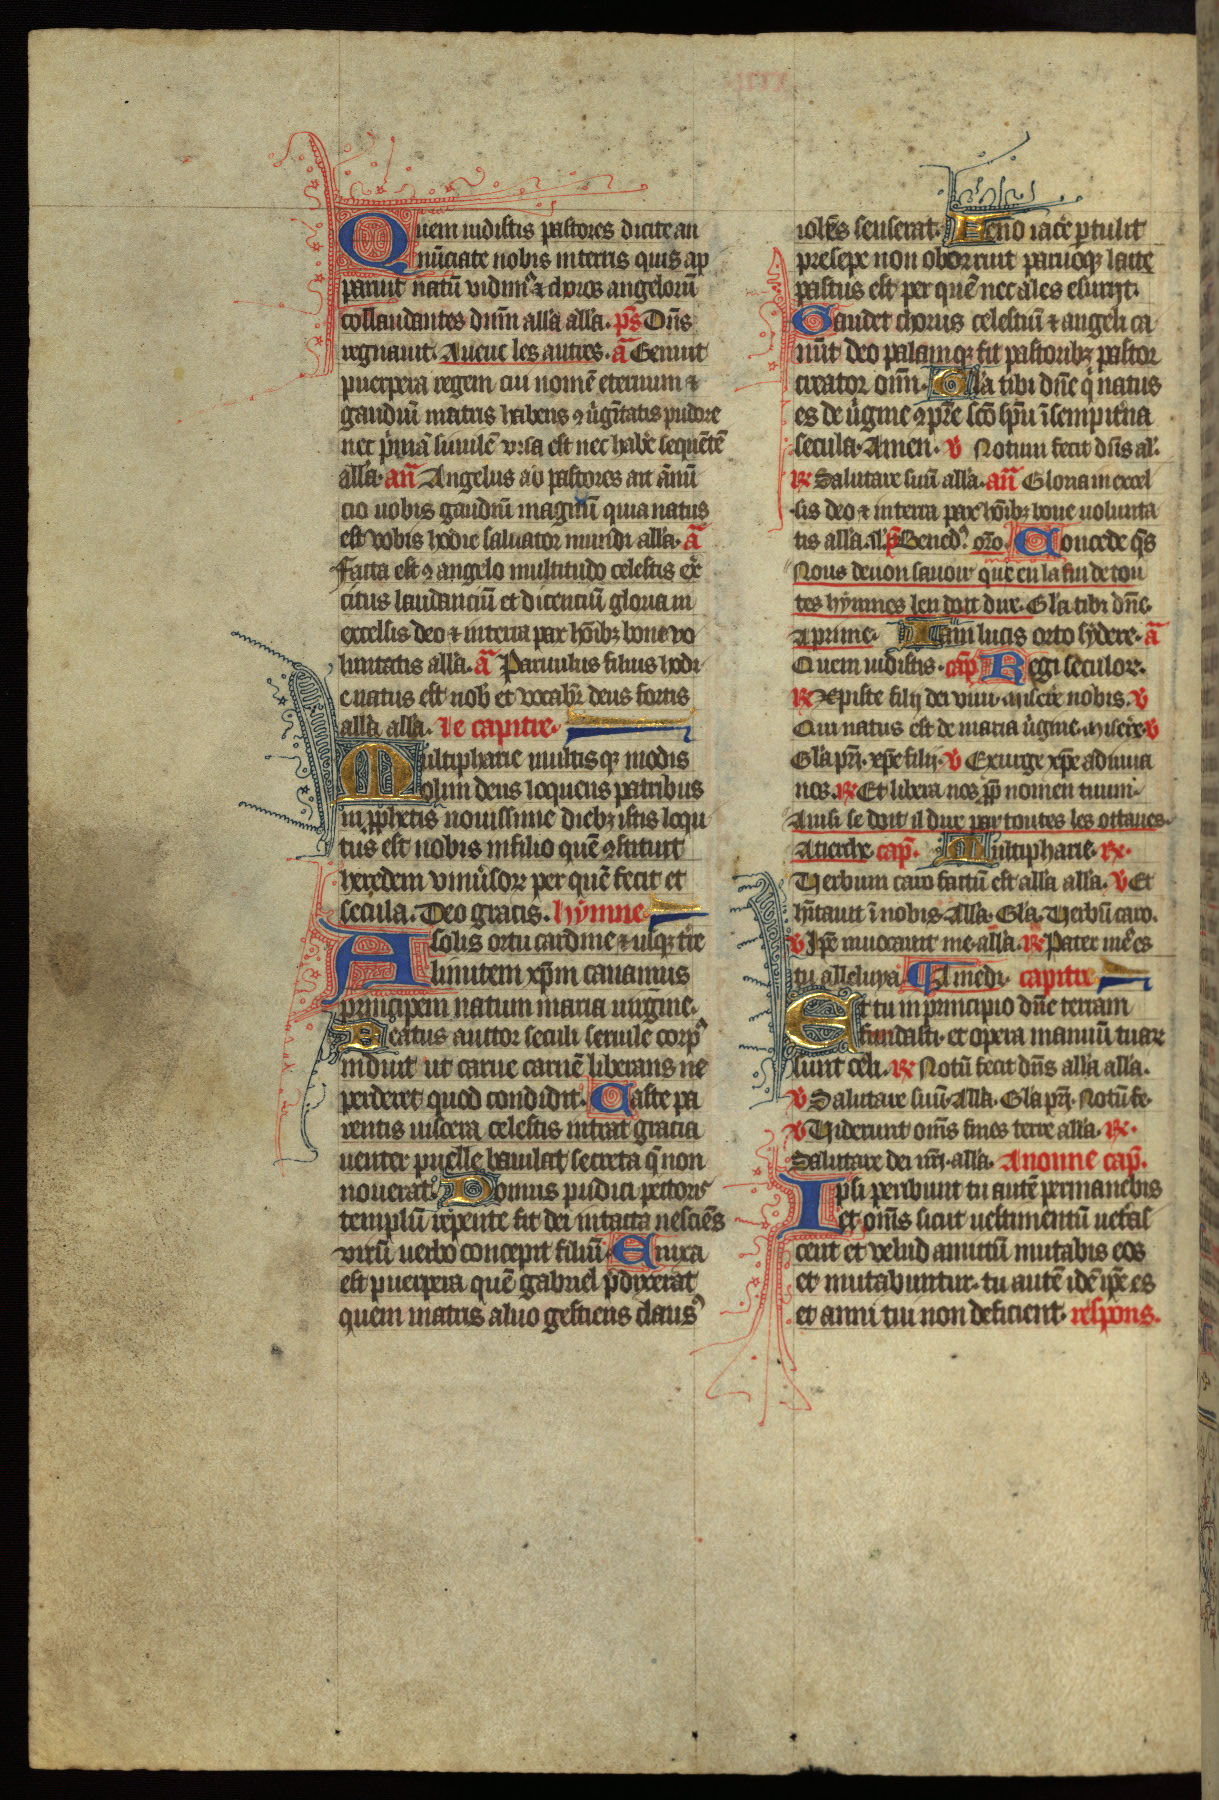 Quem uidistis pastores dicite an
nūciate nobis in terris quis ap
paruit natū vidimꝰ ⁊ choros angelorū
collaudantes dnm̄ all'a all'a. ps̄ Dn̄s
regnauit. Auecͻ les autres. ā Genuit
puerpera regem cui nomē eternum ⁊
gaudiū matris habens ꝯ uͥgītatis pudore
nec pͥmā similē visa est nec habē sequētē
all'a. an̄ Angelus ad pastores ait ānū
cio uobis gaudiū magnū quia natus
est vobis hodie saluator mundi all'a. ā
Facta est ꝯ angelo multitudo celestis ex
citus laudanciū et dicenciū gloria in
excelsis deo ⁊ in terra pax hōibꝫ bone vo
luntatis all'a. ā Paruulus filius hodi
e natus est nob̄ et vocabr̄ deus fortis
all'a all'a. Le capitre.
Multipharie multisqꝫ modis
olim deus loquens patribus
in ꝓphetis nouissime diebꝫ istis loqu
tus est nobis in filio quē ꝯstituit
heredem vniuͥsoꝝ per quē fecit et
secula. Deo gracis. hymne
A solis ortu cardine ⁊ usqꝫ tr̄e
limitem xp̄m canamus
principem natum maria uirgine.
Beatus auctor seculi seruile corpꝰ
induit ut carne carnē liberans ne
perderet quod condidit. Caste pa
rentis uiscera celestis intrat gracia
uenter puelle baiulat secreta q̄ non
nouerat. Domus pudici pectoris
templū repente fit dei intacta nesciēs
virū uerbo concepit filiū. Enixa
est puerpera quē gabriel p̄dixerat
quem matris aluo gestiens clausꝰ
ioh̄es senserat. Feno iacē ꝑtulit
presepe non oborruit paruoqꝫ lacte
pastus est per quē nec ales esurijt.
Gaudet chorus celestiū ⁊ angeli ca
nūt deo palamqꝫ fit pastoribꝫ pastor
creator om̄n. Gl'a tibi dn̄e qͥ natus
es de uͥgine ꝯ pr̄e sc̄o sp̄u ī sempitͥna
secula. Amen. v Notum fecit dn̄s al'.
℟ Salutare suū all'a. an̄ Gloria in excel
sis deo ⁊ in terra pax hōibꝫ bone uolunta
tis all'a. il. p̄s Bened'. oro. Concede qs̄
Nous deuon sauoir que en la fin de tou
tes hymnes len doit dire. Gl'a tibi dn̄e.
A prime. Iam lucis orto sydere. ā
Quem uidistis. cap̄. Regi seculoꝝ.
℟ Xp̄iste filij dei viui. miserē nobis. v
Qui natus est de maria uͥgine. miserē. v
Gl'a pr̄i. xp̄e filij. v Exurge xp̄e adiuua
nos. ℟ Et libera nos ꝓp̄ nomen tuum.
Ainsi se doit il dire par toutes les ottaues.
A tierche cap̄. Multipharie. ℟.
Uerbum caro factū est all'a all'a. v Et
hītauit ī nobis. All'a. Gl'a. Uerbū caro.
v Ip̄e inuocauit me. all'a. ℟ Pater mēꝰ es
tu alleluya. A medi. capitre
Et tu in principio dn̄e terram
fundasti. et opera manuū tuaꝝ
sunt celi. ℟ Notū fecit dn̄s all'a all'a.
v Salutare suū. All'a. Gl'a pr̄i. Notū fe.
v Uiderunt om̄s fines terre all'a. ℟.
Salutare dei nr̄i. all'a. A nonne cap̄.
Ipsi peribunt tu autē permanebis
et om̄s sicut uestimentū ueteras
cent et velud amictū mutabis eos
et mutabuntur. tu autē idē ip̄e es
et anni tui non deficient. respons.